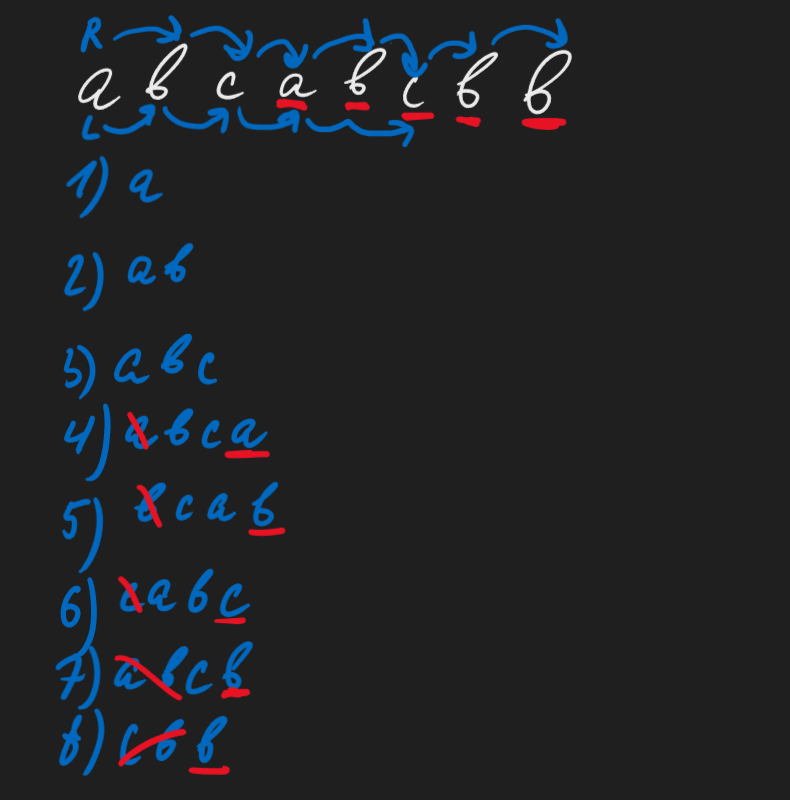 R
a b c a b c b b
L
1) a
2) a b
3) a b c
4) a b c a
5) b c a b
6) c a b c
7) a b c b
8) c b b